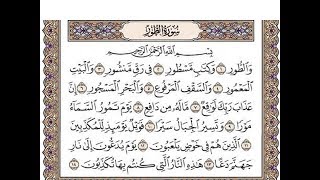 سُورَةُ الطُّورِ
بِسْمِ اللَّهِ الرَّحْمَٰنِ الرَّحِيمِ
وَالطُّورِ ١ وَكِتَابٍ مَسْطُورٍ ٢ فِي رَقٍّ مَنْشُورٍ ٣ وَالْبَيْتِ
الْمَعْمُورِ ٤ وَالسَّقْفِ الْمَرْفُوعِ ٥ وَالْبَحْرِ الْمَسْجُورِ ٦
إِنَّ عَذَابَ رَبِّكَ لَوَاقِعٌ ٧ مَا لَهُ مِنْ دَافِعٍ ٨ يَوْمَ تَمُورُ السَّمَاءُ
مَوْرًا ٩ وَتَسِيرُ الْجِبَالُ سَيْرًا ١٠ فَوَيْلٌ يَوْمَئِذٍ لِلْمُكَذِّبِينَ
١١ الَّذِينَ هُمْ فِي خَوْضٍ يَلْعَبُونَ ١٢ يَوْمَ يُدَعُّونَ إِلَىٰ نَارِ
جَهَنَّمَ دَعًّا ١٣ هَٰذِهِ النَّارُ الَّتِي كُنْتُمْ بِهَا تُكَذِّبُونَ ١٤